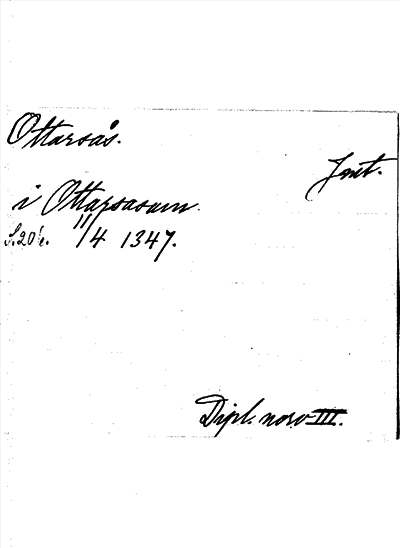 Ottarsås.
Jmt.
i Ottarsasam
11/4 1347.
Dipl. norv III.